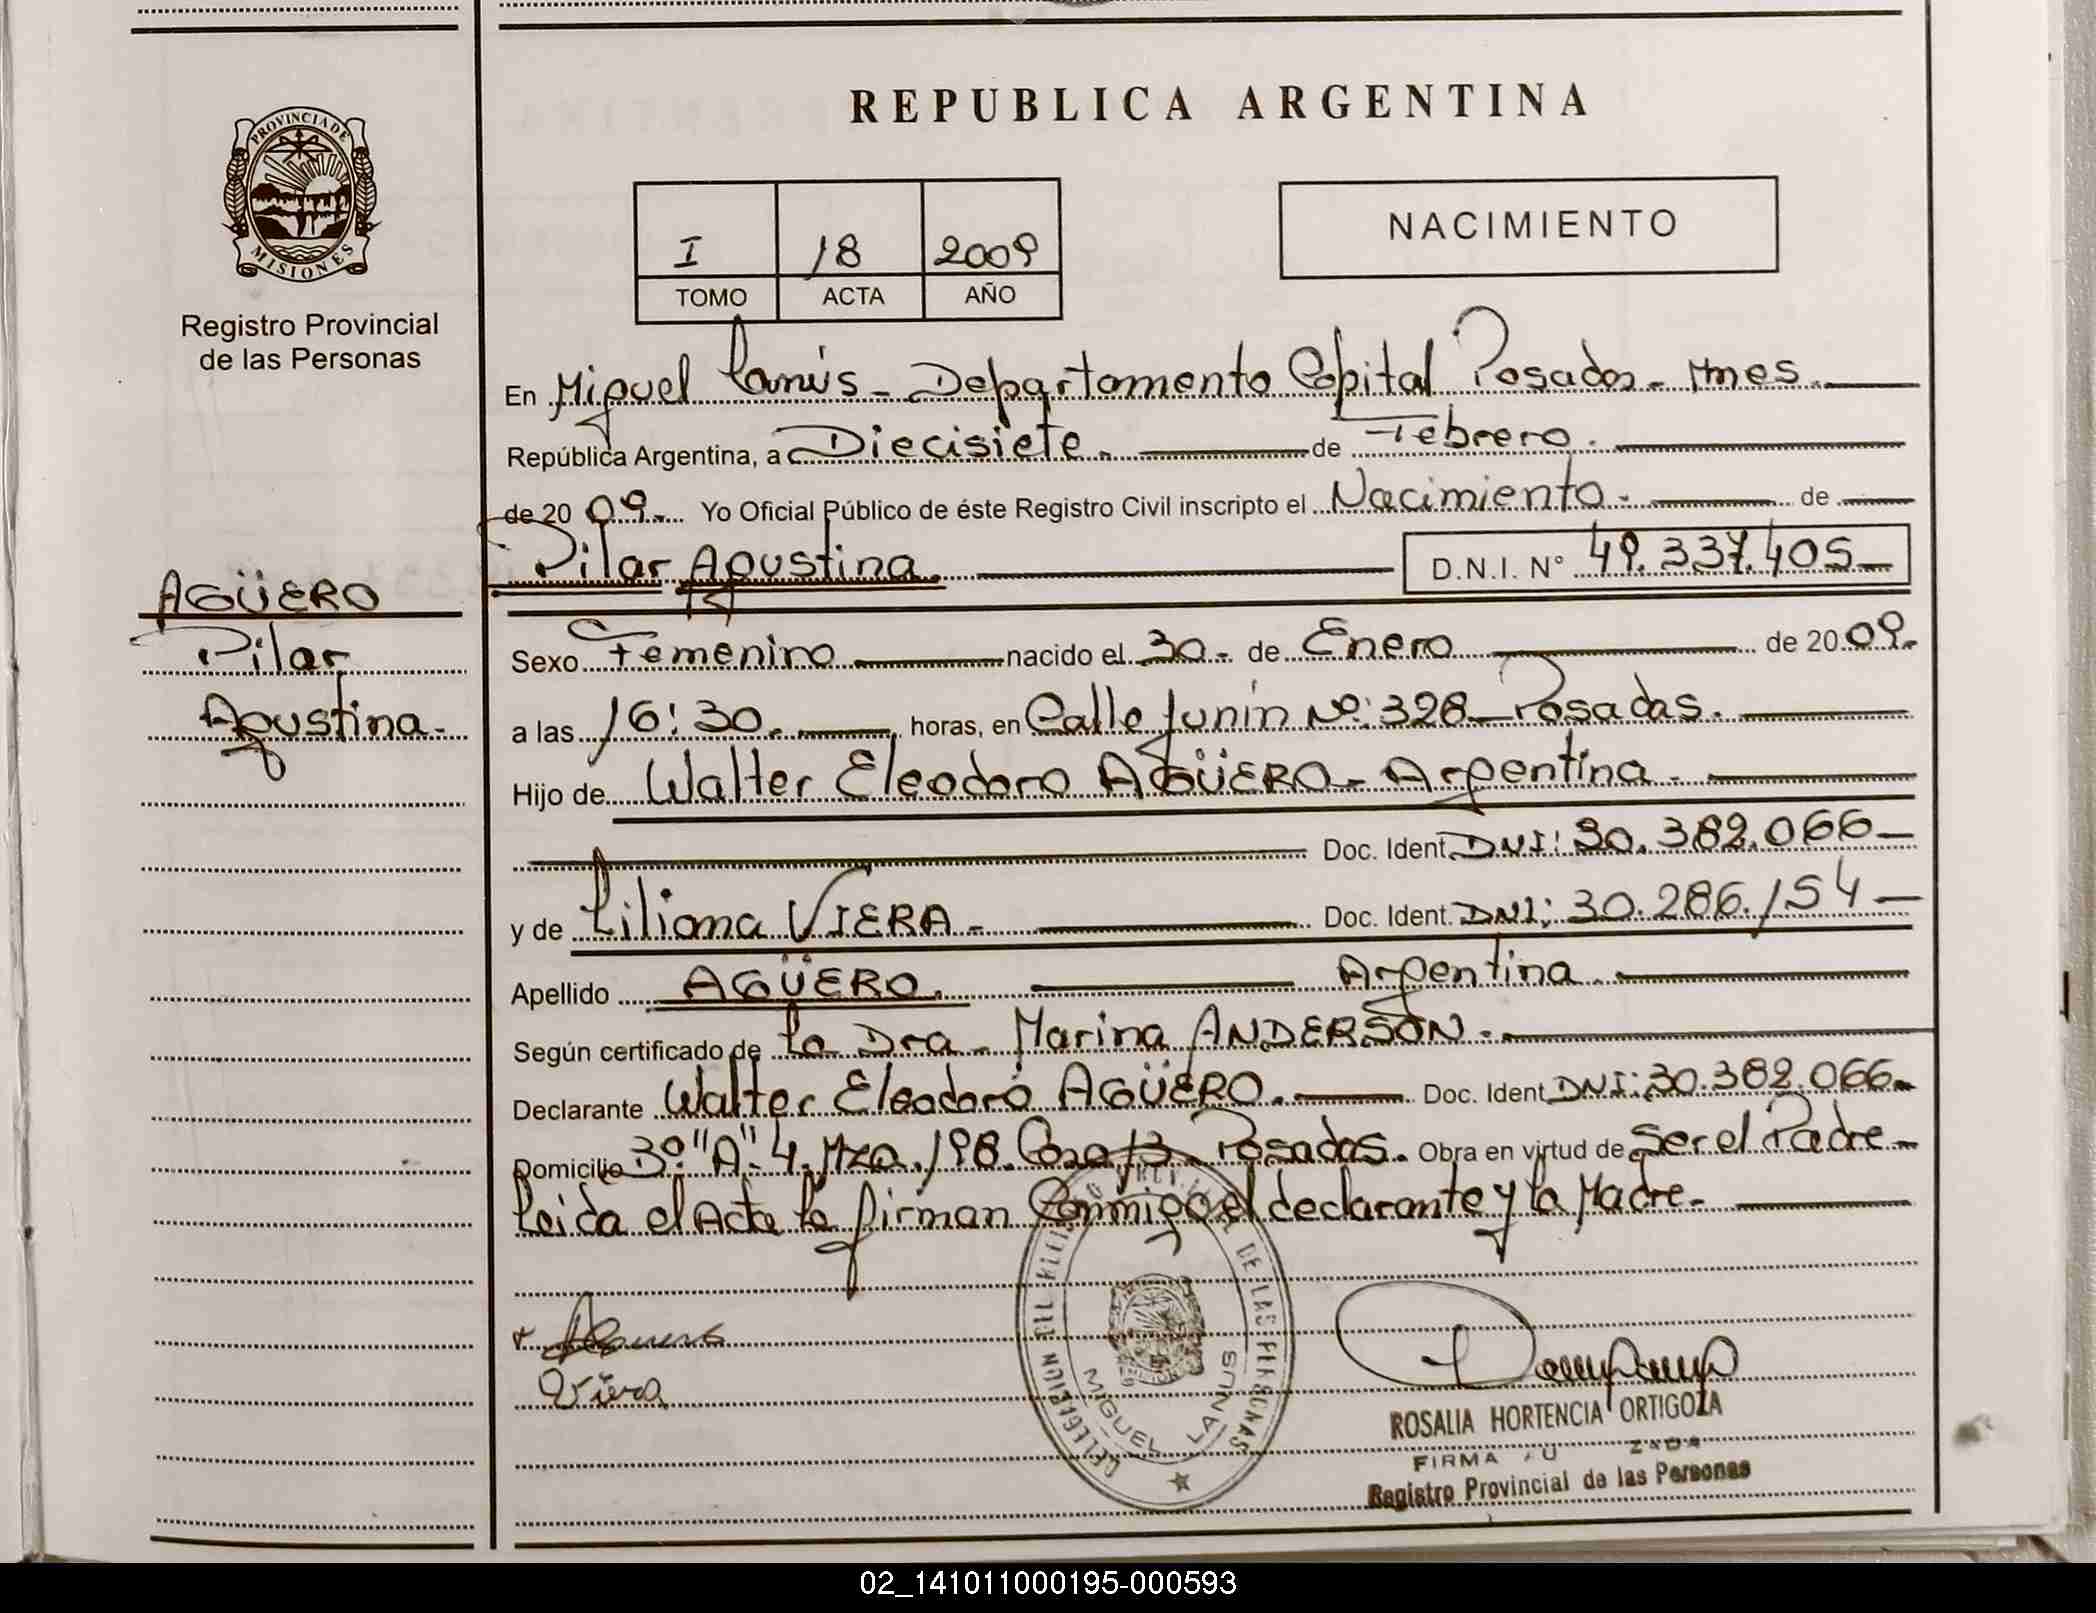 REPUBLICA ARGENTINA
PROVINCIA DE
MISIONES
Registro Provincial
de las Personas
I 18 2009
TOMO ACTA AÑO
NACIMIENTO
En Miguel Lanús - Departamento Capital Posadas - Mnes.
República Argentina, a Diecisiete. de Febrero.
de 20 09. Yo Oficial Público de éste Registro Civil inscripto el Nacimiento. de
Pilar Agustina. D.N.I. N° 49.337.405
AGÜERO
Pilar
Agustina.
Sexo Femenino nacido el 30. de Enero de 20 09.
a las 16:30. horas, en Calle Junín Nº: 328 - Posadas.
Hijo de Walter Eleodoro AGÜERO - Argentina.
Doc. Ident. DNI: 30.382.066
y de Liliana VIERA. Doc. Ident. DNI: 30.286.154
Apellido AGÜERO. Argentina.
Según certificado de La Dra. Marina ANDERSON.
Declarante Walter Eleodoro AGÜERO. Doc. Ident. DNI: 30.382.066
Domicilio 3º "A" 4. Mza. 198. Casa 13 - Posadas. Obra en virtud de Ser el Padre
Leida el Acta la firman Conmigo el declarante y la Madre.
Viera
MIGUEL LANUS
DE LAS PERSONAS
ROSALIA HORTENCIA ORTIGOZA
FIRMA
Registro Provincial de las Personas
02_141011000195-000593